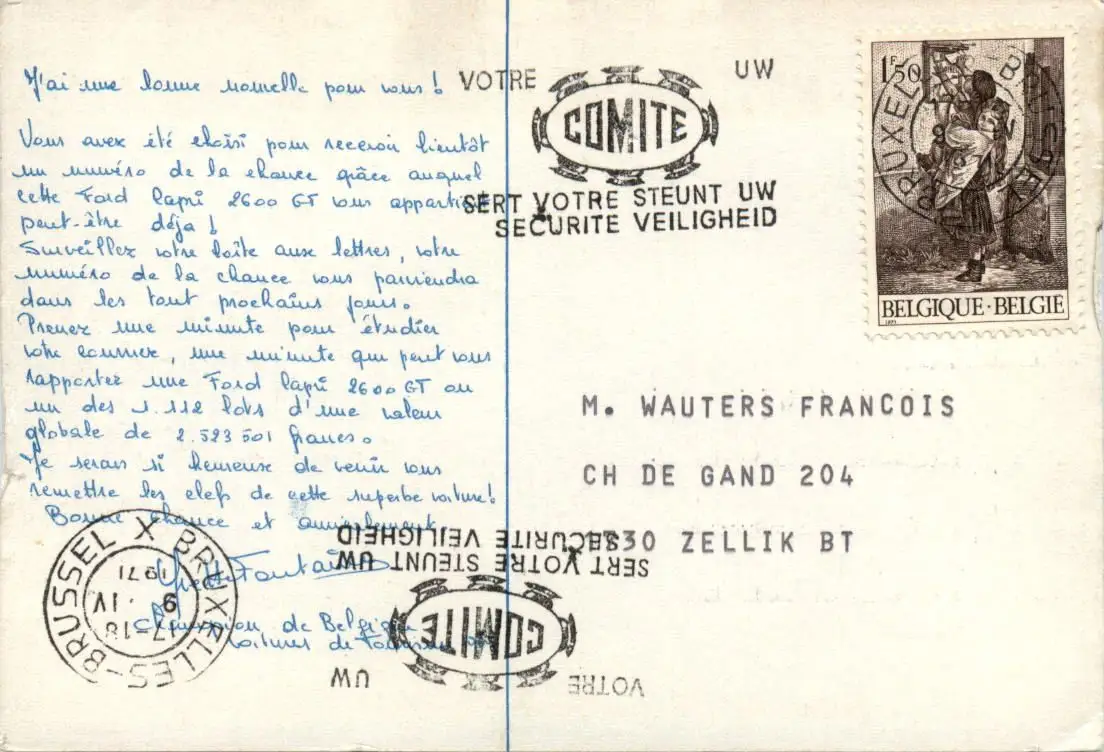 J'ai une bonne nouvelle pour vous !
Vous avez été choisi pour recevoir bientôt
un numéro de la chance grâce auquel
cette Ford Capri 2600 GT vous appartient
peut-être déja !
Surveillez votre boîte aux lettres, votre
numéro de la chance vous parviendra
dans les tout prochains jours.
Prenez une minute pour étudier
votre courrier, une minute qui peut vous
rapporter une Ford Capri 2600 GT ou
un des 1.112 lots d'une valeur
globale de 2.523 501 francs.
Je serais si heureuse de venir vous
remettre les clefs de cette superbe voiture!
Bonne chance et amicalement
Yvette Fontaine
Champion de Belgique
voitures de tourisme
VOTRE UW
COMITE
SERT VOTRE STEUNT UW
SECURITE VEILIGHEID
1F50
BRUXELLES
BELGIQUE·BELGIE
1971
M. WAUTERS FRANCOIS
CH DE GAND 204
1730 ZELLIK BT
BRUSSEL X BRUXELLES-
17-18
9 IV
1971
VOTRE UW
COMITE
SERT VOTRE STEUNT UW
SECURITE VEILIGHEID